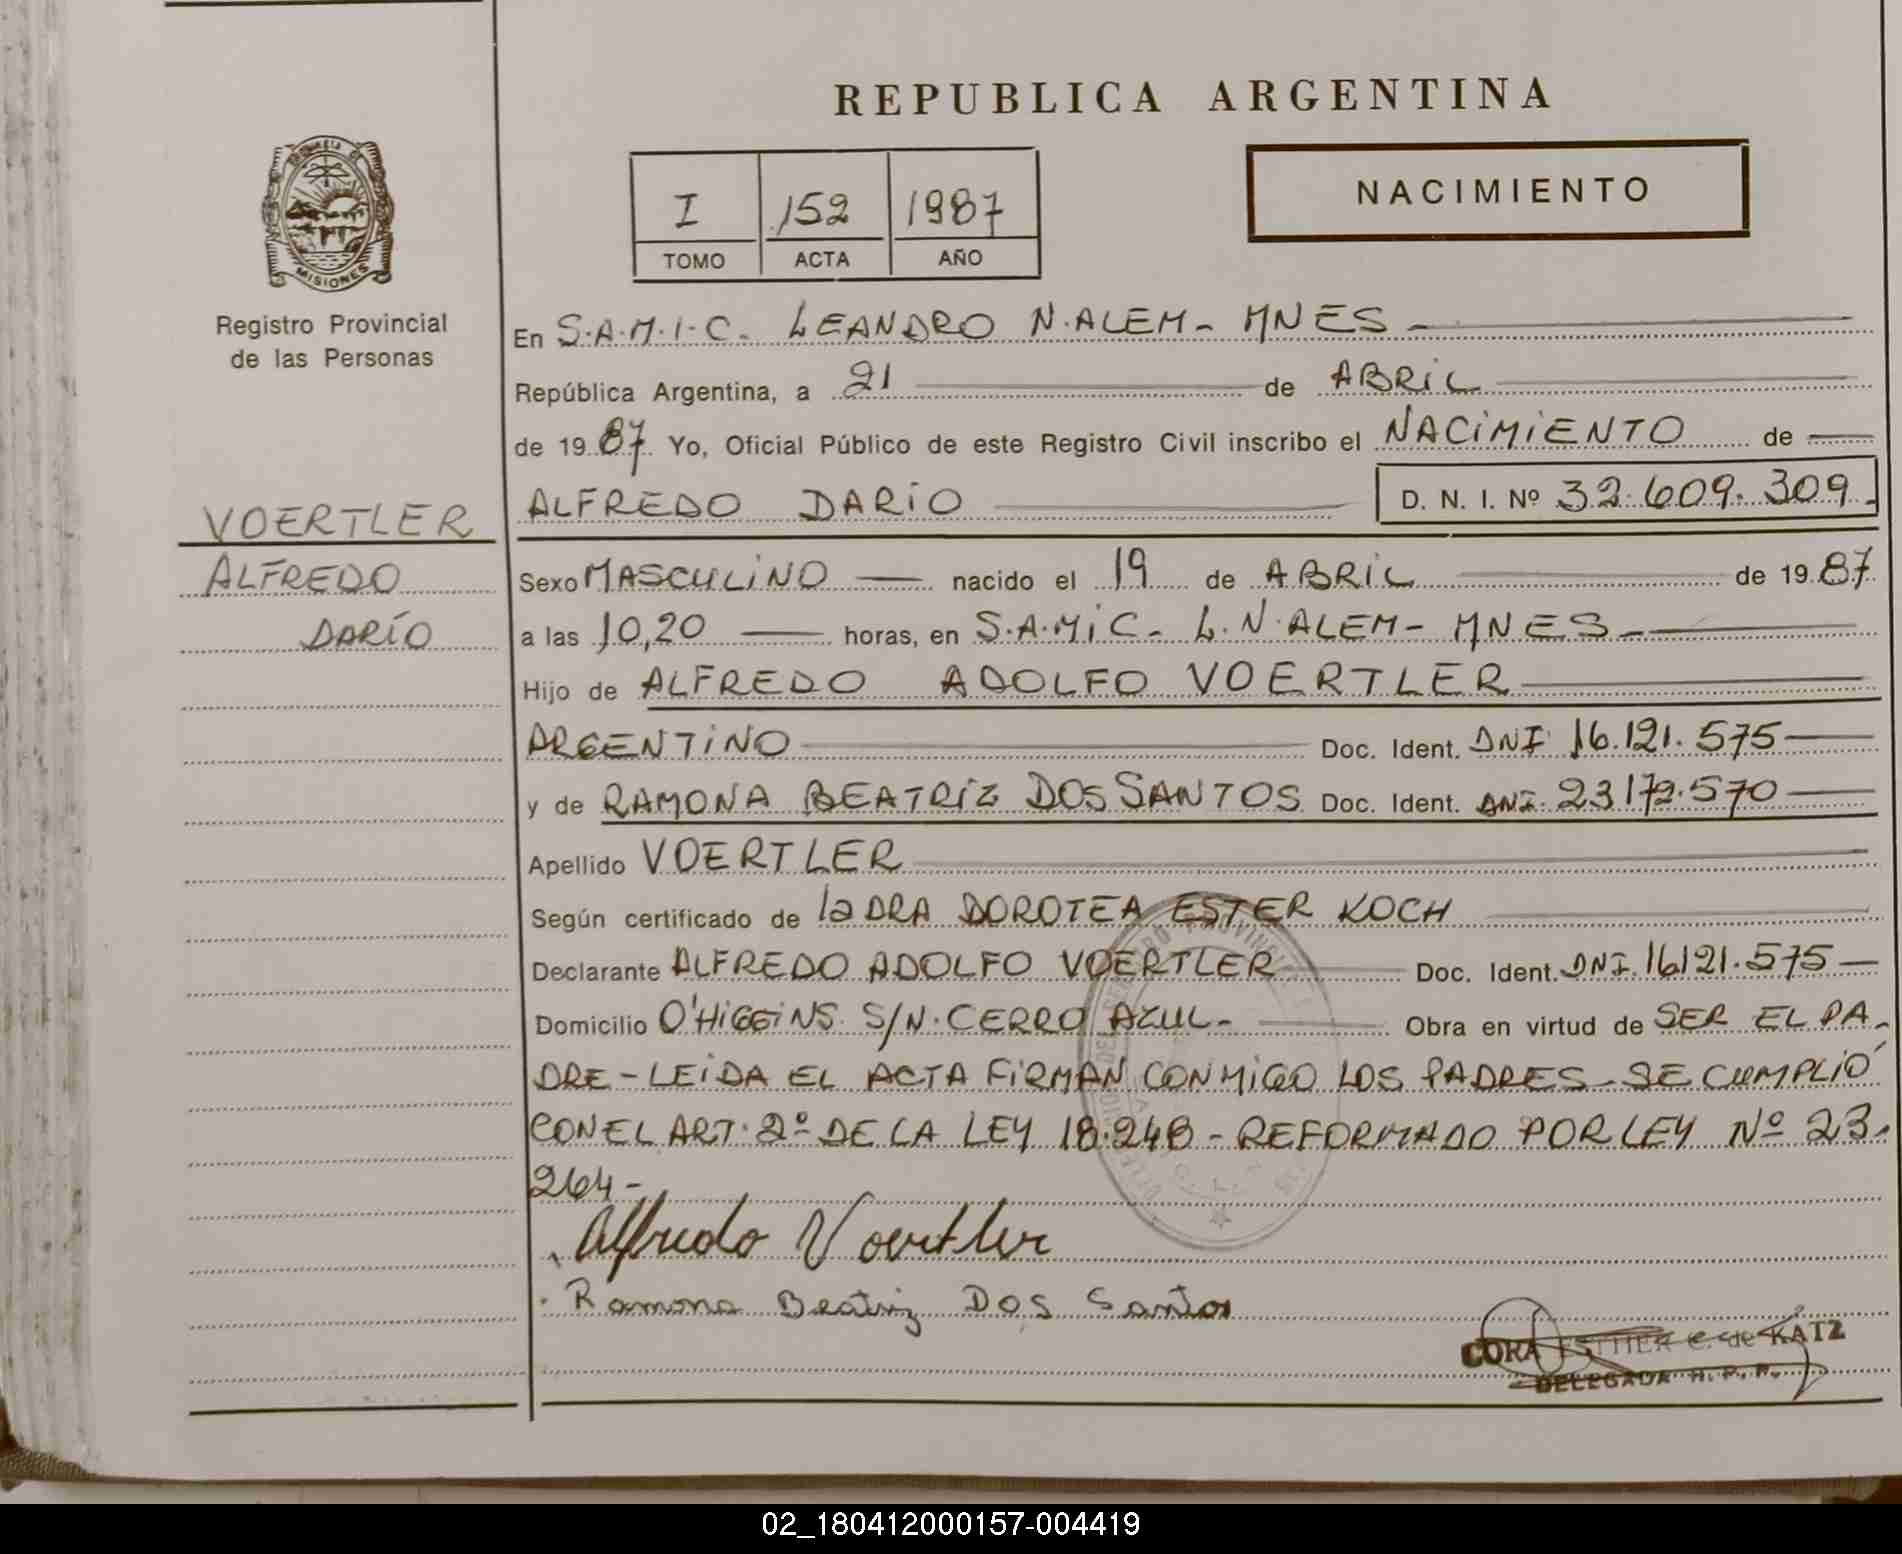 REPUBLICA ARGENTINA
I 152 1987
TOMO ACTA AÑO
NACIMIENTO
MISIONES
Registro Provincial
de las Personas
VOERTLER
ALFREDO
DARÍO
En S.A.M.I.C. LEANDRO N. ALEM - MNES -
República Argentina, a 21 de ABRIL
de 19 87 Yo, Oficial Público de este Registro Civil inscribo el NACIMIENTO de
ALFREDO DARIO D. N. I. Nº 32.609.309.
Sexo MASCULINO nacido el 19 de ABRIL de 19 87
a las 10,20 horas, en S.A.M.I.C. L.N. ALEM - MNES -
Hijo de ALFREDO ADOLFO VOERTLER
ARGENTINO Doc. Ident. DNI 16.121.575
y de RAMONA BEATRIZ DOS SANTOS Doc. Ident. DNI. 23172.570
Apellido VOERTLER
Según certificado de la DRA DOROTEA ESTER KOCH
Declarante ALFREDO ADOLFO VOERTLER Doc. Ident. DNI. 16121.575
Domicilio O'HIGGINS S/N. CERRO AZUL - Obra en virtud de SER EL PA-
DRE - LEIDA EL ACTA FIRMAN CONMIGO LOS PADRES - SE CUMPLIÓ
CON EL ART. 2º DE LA LEY 18.248 - REFORMADO POR LEY Nº 23.
264 -
Alfredo Voertler
Ramona Beatriz Dos Santos
CORA ESTHER C. de KATZ
DELEGADA R. P. P.
02_180412000157-004419